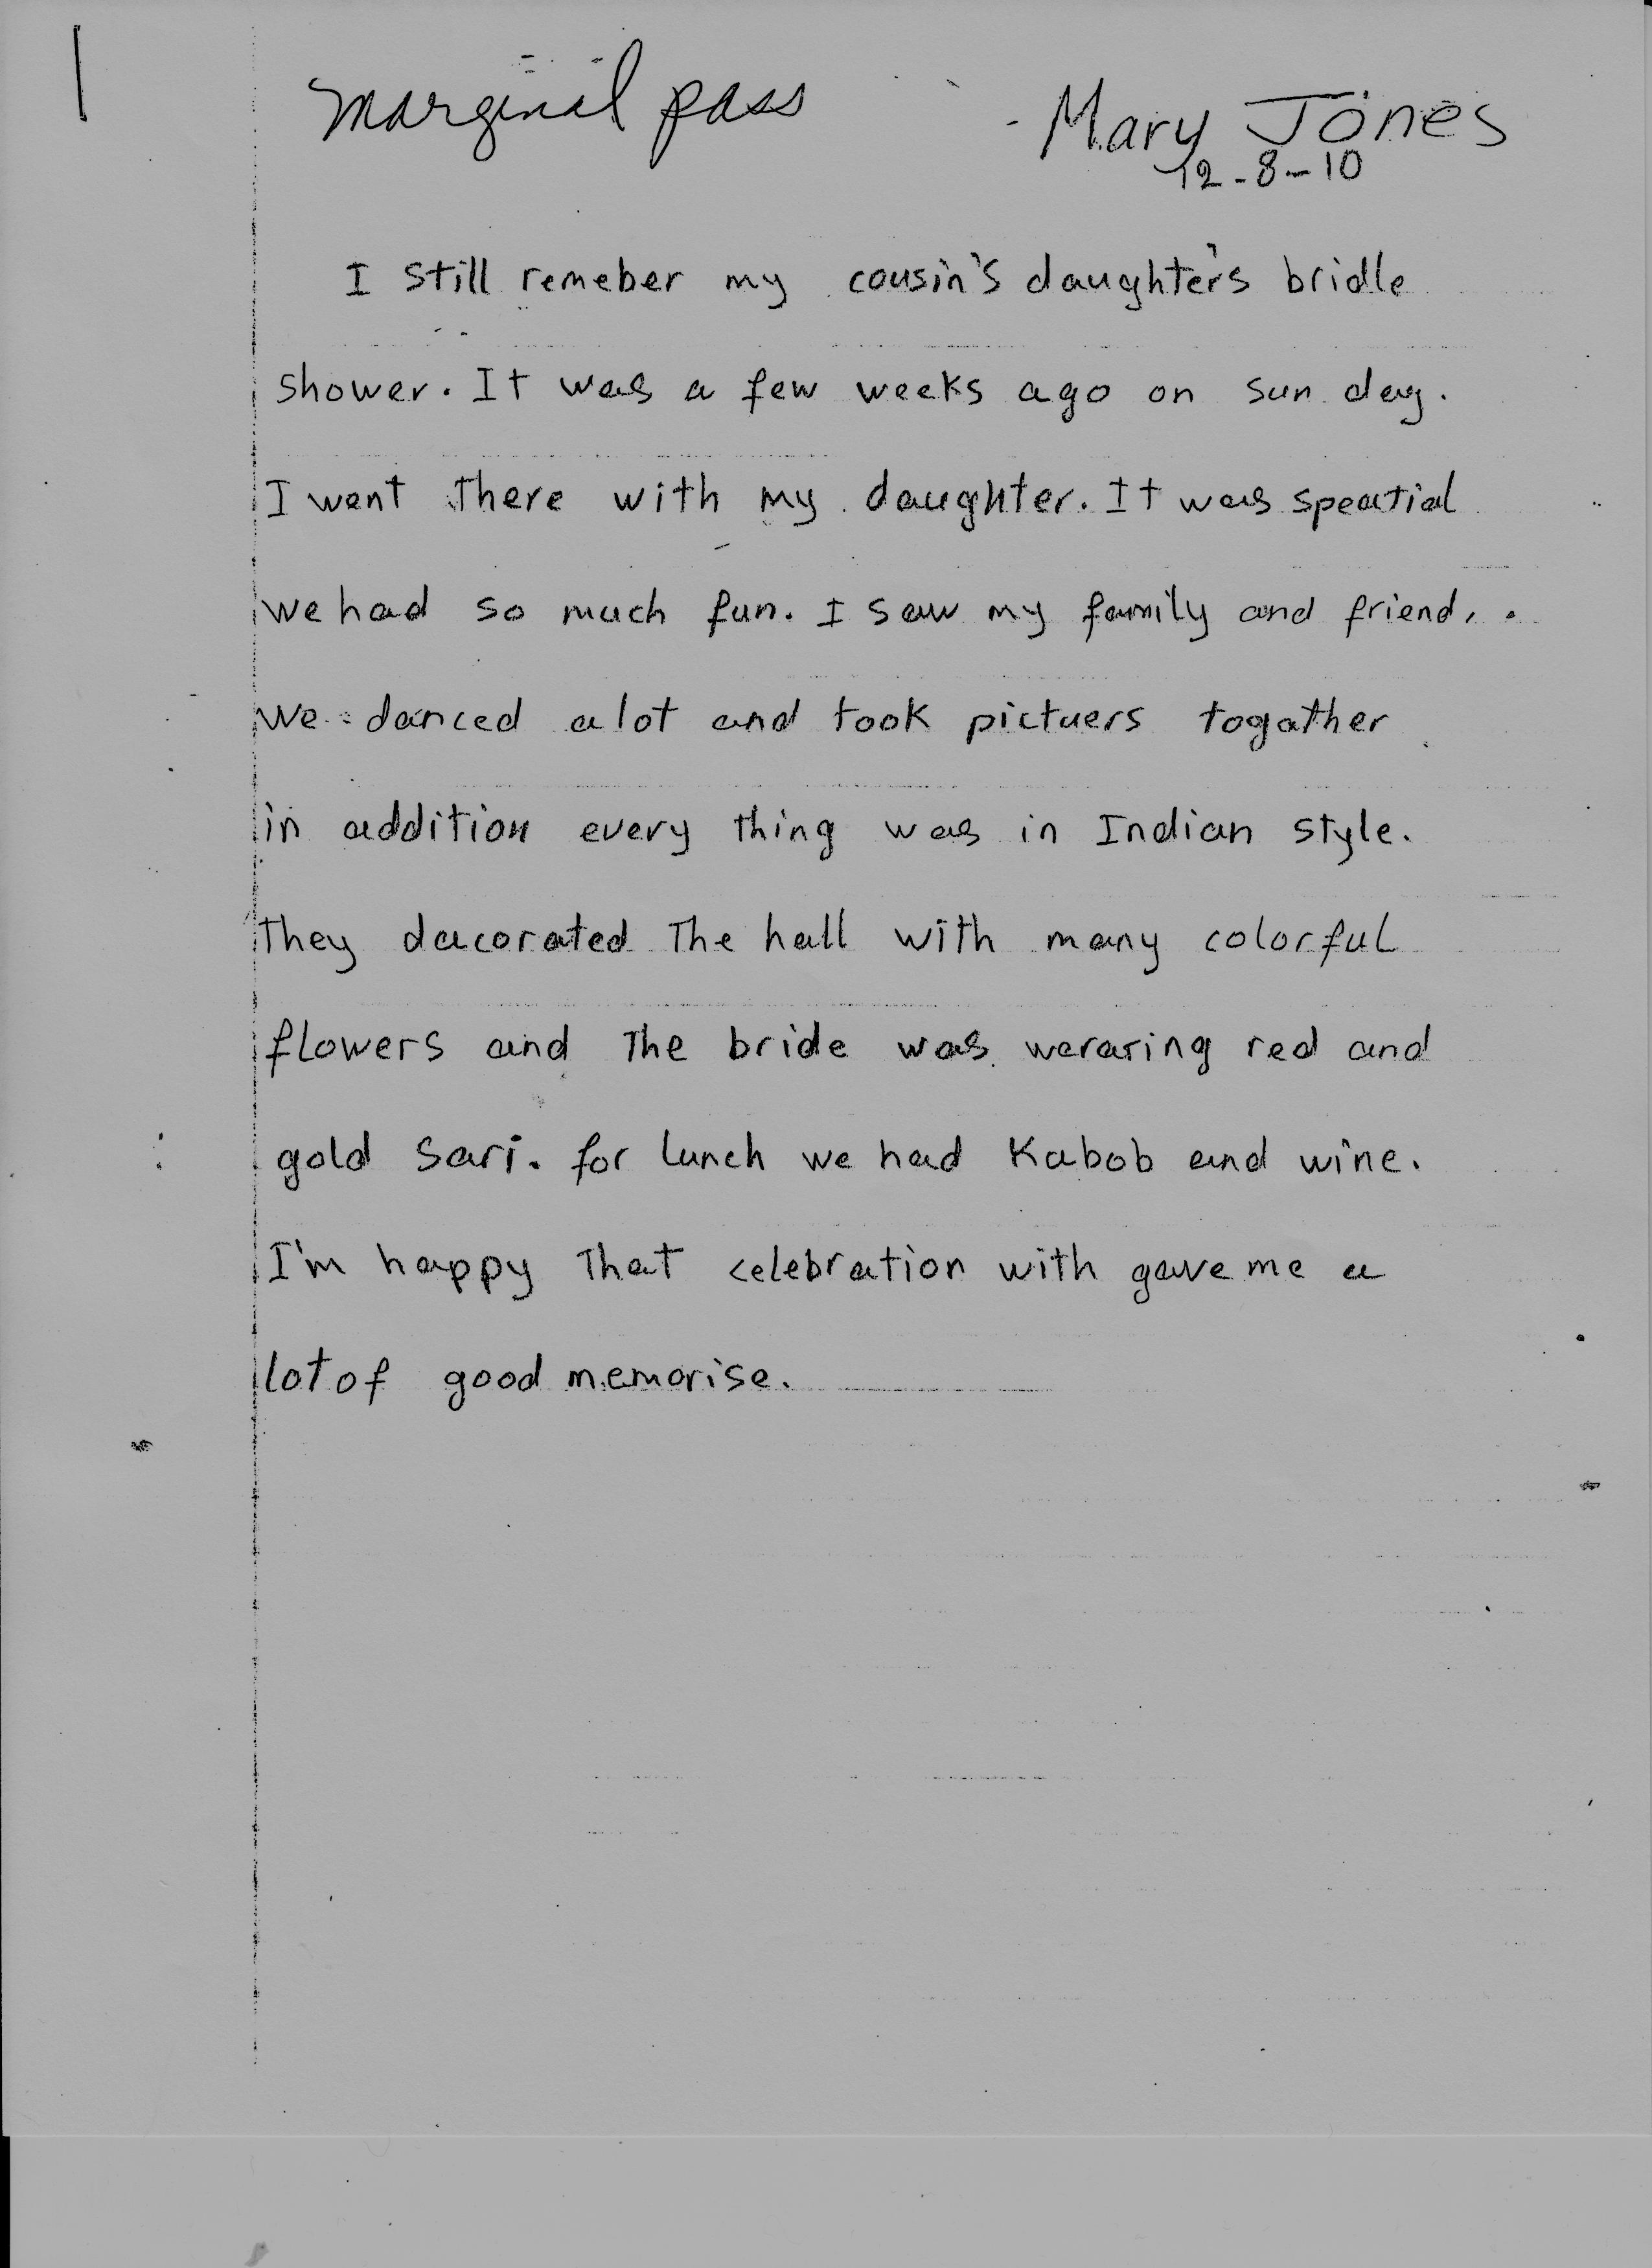 marginal pass - Mary Jones
12-8-10
I still remeber my cousin's daughter's bridle
shower. It was a few weeks ago on sun day.
I went there with my daughter. It was speatial
we had so much fun. I saw my family and friend,.
we danced alot and took pictuers togather
in addition every thing was in Indian style.
They dacorated The hall with many colorful
flowers and The bride was weraring red and
gold sari. for lunch we had Kabob and wine.
I'm happy That celebration with gave me a
lot of good memorise.